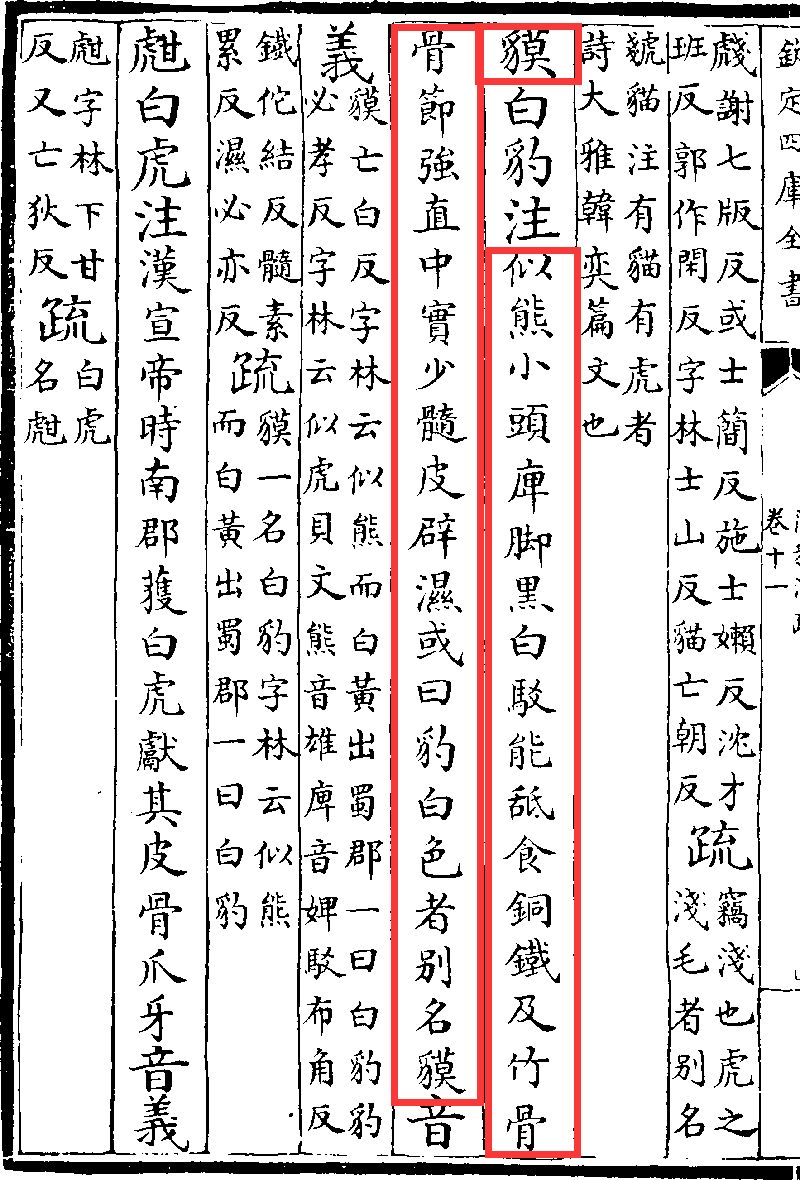 欽定四庫全書
卷十一
虥謝七版反或士簡反施士嬾反沈才
班反郭作閑反字林士山反貓亡朝反
疏
竊淺也虎之
淺毛者別名
虥貓注有貓有虎者
詩大雅韓奕篇文也
貘白豹注似熊小頭庳脚黑白駁能舐食銅鐵及竹骨
骨節強直中實少髓皮辟濕或曰豹白色者別名貘音
義
貘亡白反字林云似熊而白黃出蜀郡一曰白豹豹
必孝反字林云似虎貝文熊音雄庳音婢駁布角反
鐵佗結反髓素
累反濕必亦反
疏
貘一名白豹字林云似熊
而白黃出蜀郡一曰白豹
甝白虎注漢宣帝時南郡獲白虎獻其皮骨爪牙音義
甝字林下甘
反又亡狄反
疏
白虎
名甝